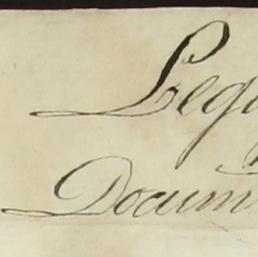 Legi
Docum